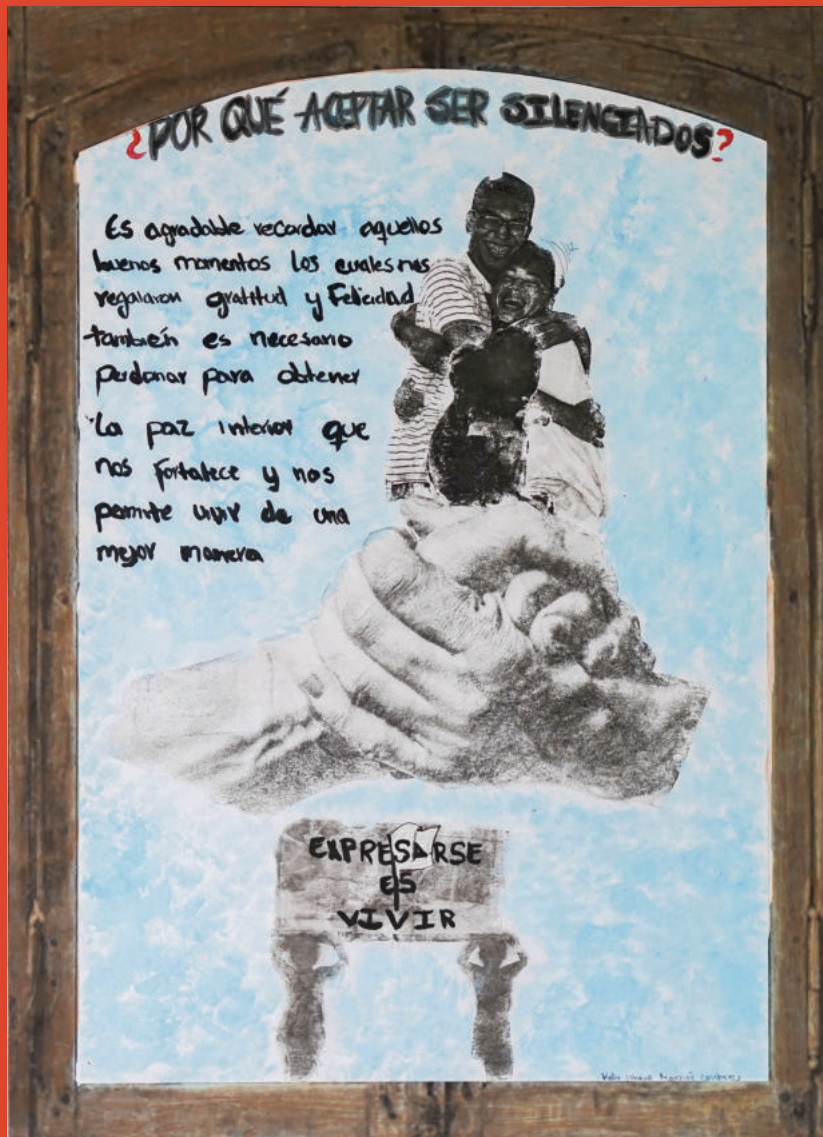 ¿POR QUÉ ACEPTAR SER SILENCIADOS?
Es agradable recordar aquellos
buenos momentos los cuales nos
regalaron gratitud y Felicidad
también es necesario
perdonar para obtener
La paz interior que
nos fortalece y nos
permite vivir de una
mejor manera
EXPRESARSE
ES
VIVIR